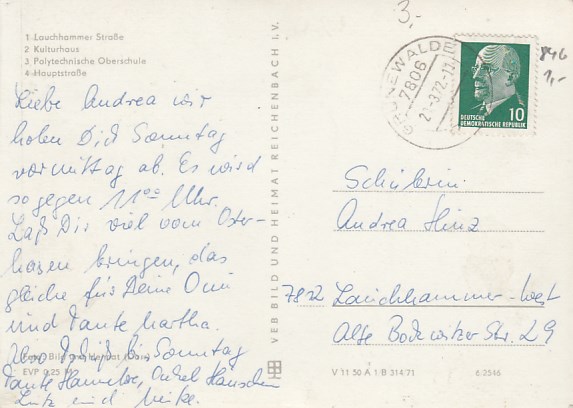 3.-
1 Lauchhammer Straße
2 Kulturhaus
3 Polytechnische Oberschule
4 Hauptstraße
Liebe Andrea wir
holen Dich Sonntag
vormittag ab. Es wird
so gegen 11 00 Uhr.
Laß Dir viel vom Oster-
hasen bringen, das
gleiche für Deine Omi
und Tante Martha.
Also tschüß bis Sonntag
Tante Hannelore, Onkel Hänschen
Lutz und Heike.
Foto: Bild und Heimat
EVP 0,25 M
VEB BILD UND HEIMAT REICHENBACH I.V.
GRÜNEWALDE
7806
2 -3.72-17
DEUTSCHE
DEMOKRATISCHE REPUBLIK
10
846
1,-
Schülerin
Andrea Hinz
7812 Lauchhammer-West
Alte Bockwitzer Str. 29
V 11 50 A 1 B 314 71
6 2546